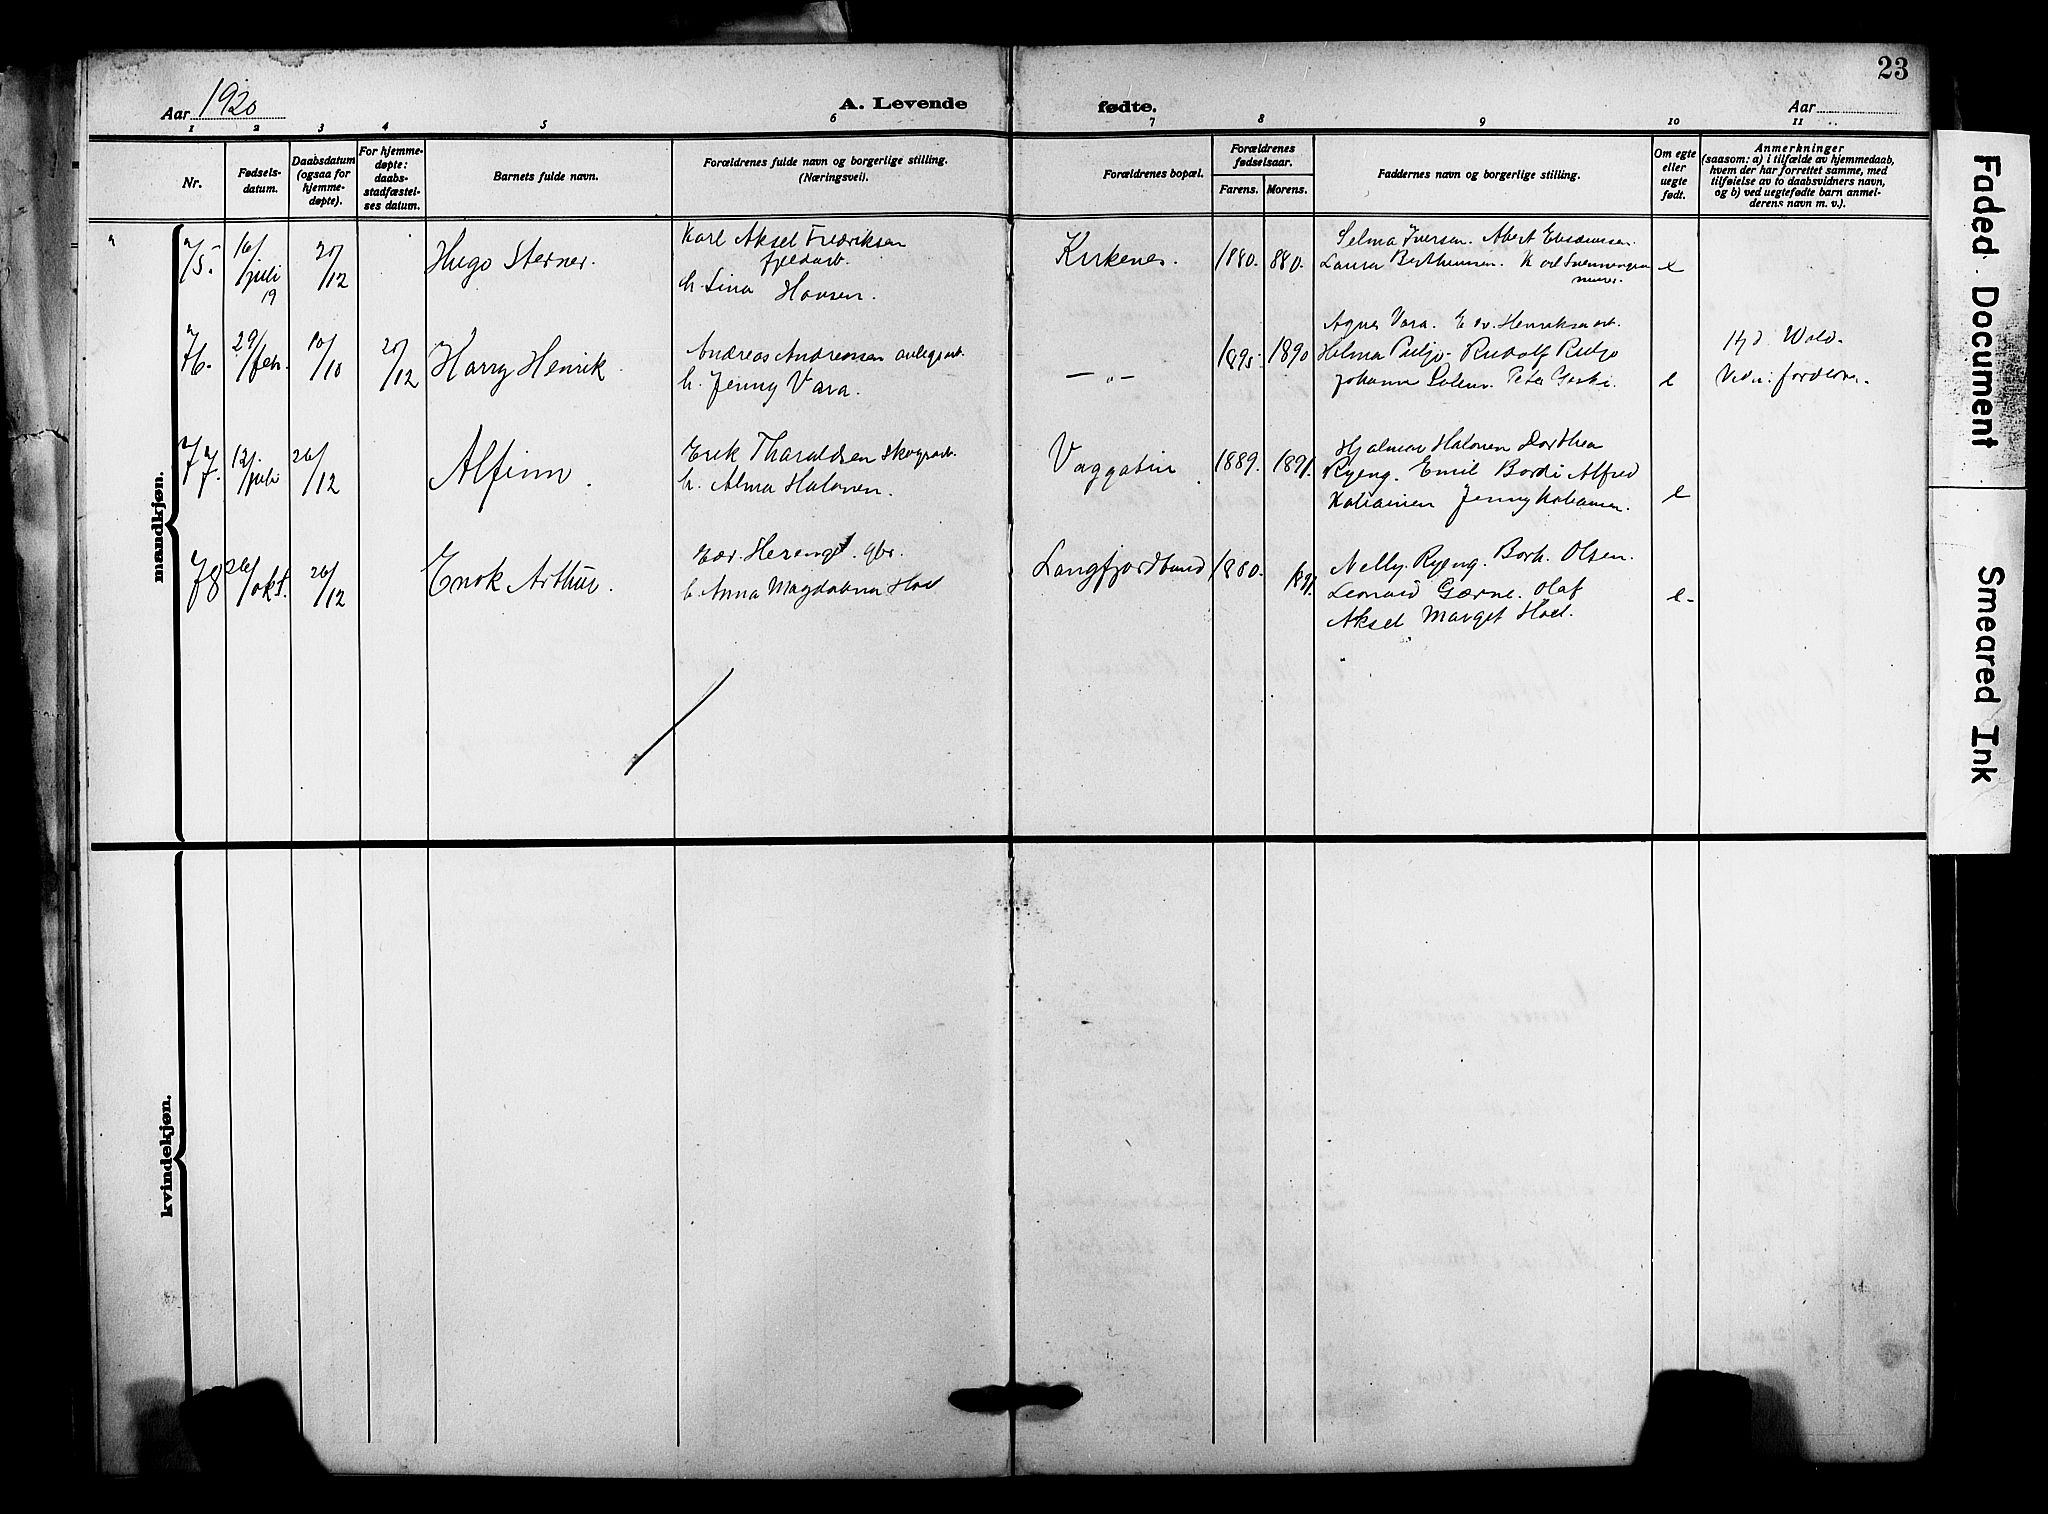 23
Aar 1920
A. Levende fødte.
Aar
1 2 3 4 5 6 7 8 9 10 11
Nr.
Fødsels-
datum.
Daabsdatum
(ogsaa for
hjemme-
døpte).
For hjemme-
døpte:
daabs-
stadfæstel-
ses datum.
Barnets fulde navn.
Forældrenes fulde navn og borgerlige stilling.
(Næringsvei).
Forældrenes bopæl.
Forældrenes
fødselsaar.
Farens. Morens.
Faddernes navn og borgerlige stilling.
Om egte
eller
uegte
født.
Anmerkninger
(saasom: a) i tilfælde av hjemmedaab,
hvem der har forrettet samme, med
tilføielse av to daabsvidners navn,
og b) ved uegtefødte barn anmel-
derens navn m. v.).
mandkjøn.
75.
16/
juli
19
20/12
Hugo Sterner.
Karl Aksel Fredriksen
fjeldarb.
h. Lina Hansen.
Kirkenes.
1880. 880.
Selma Iversen. Abert
Laura Bertheusen. K
e
76.
29/febr.
10/10
20/12
Harry Henrik.
Andreas Andreassen anlegsarb.
h. Jenny Vara.
— „ —
1895. 1890
Agnes Vara. Edv. Henriksen arb.
Helma Puljo. Rudolf Puljo
Johanna Peter
e
Hjd. Wold.
77.
12./juli
26/12
Alfinn.
Erik Tharaldsen skogsarb.
h. Alma Halonen.
Vaggatin
1889. 1891.
Hjalmar Halonen Dorthea
Ryeng. Emil Bordi Alfred
Jenny
e
78
26/okt.
26/12
Enok Arthur.
gbr.
h. Anna Magdalena Hoel
Langfjordbund
1880. 1891.
Nelly Ryeng. Borh. Olsen.
Leonard Gærne. Olaf
Aksel Marget Hoel.
e-
kvindekjøn.
Faded Document
Smeared Ink